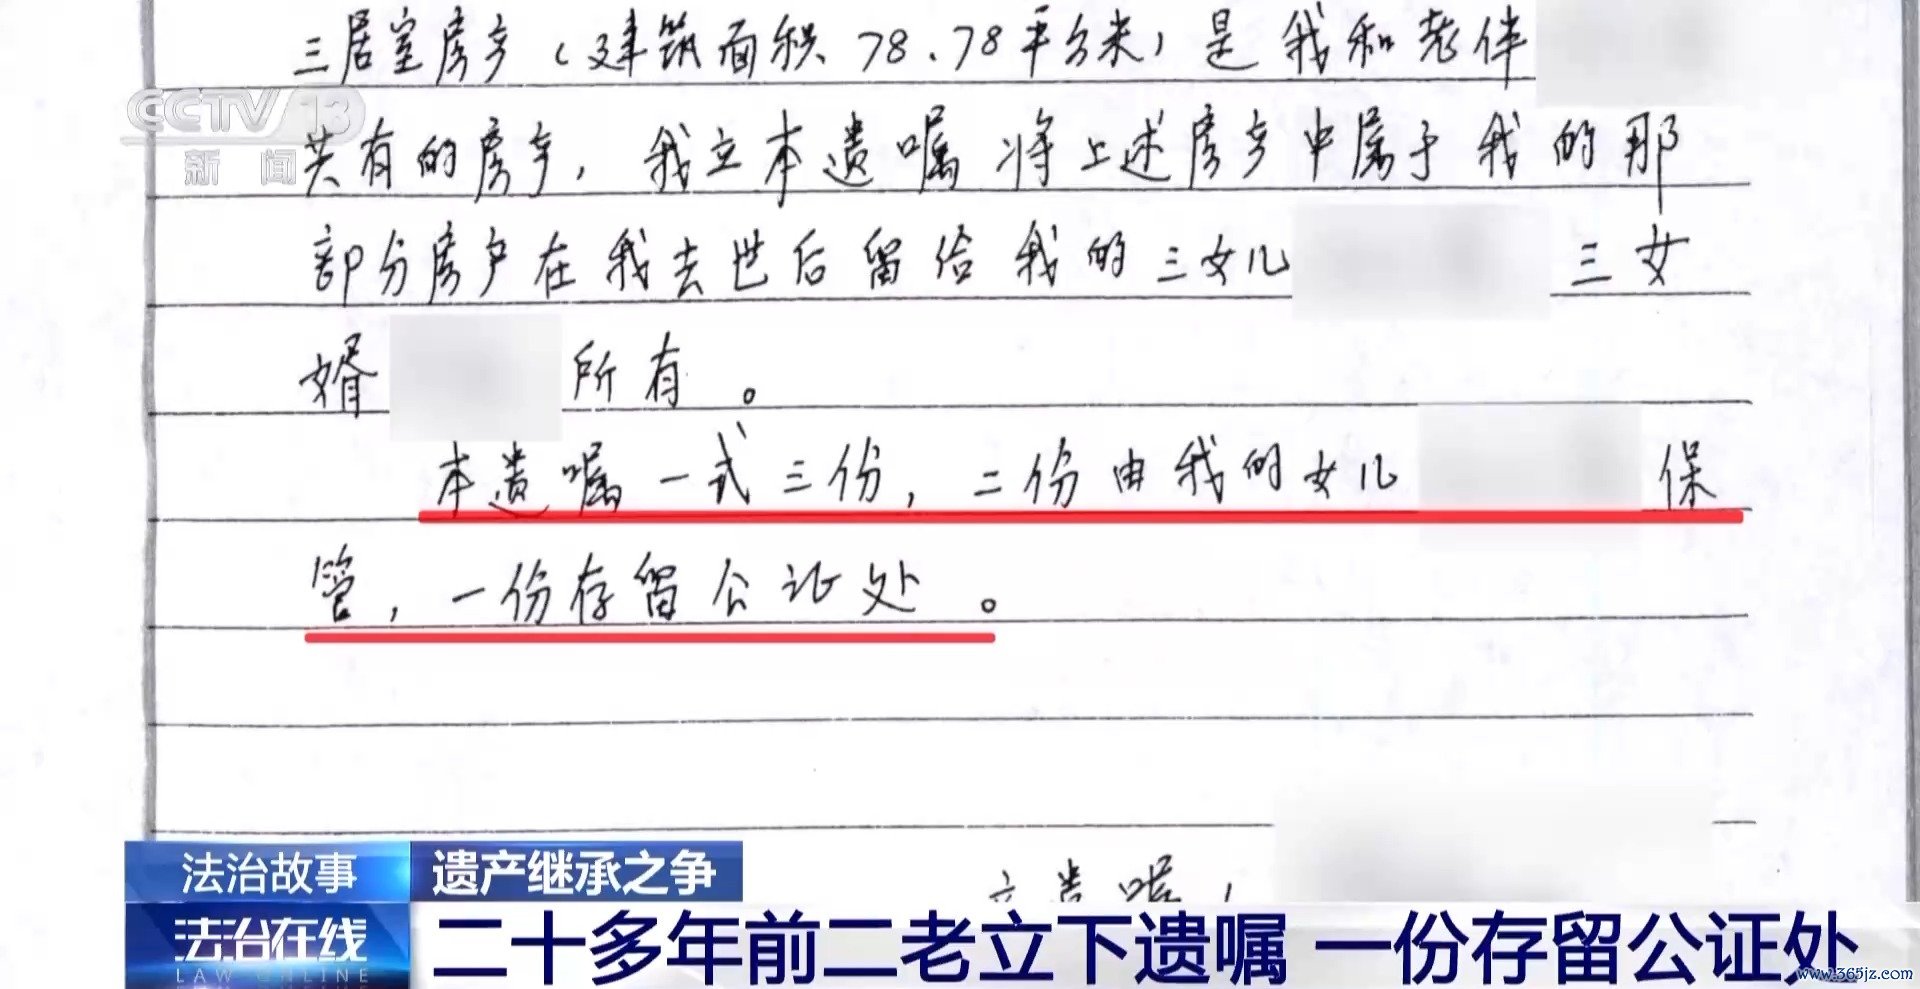 三居室房产（建筑面积78.78平方米）是我和老伴
共有的房产，我立本遗嘱将上述房产中属于我的那
部分房产在我去世后留给我的三女儿 三女
婿 所有。
本遗嘱一式三份，二份由我的女儿 保
管，一份存留公证处。
立遗嘱人
CCTV 13
新闻
法治故事
遗产继承之争
法治在线
LAW ONLINE
二十多年前二老立下遗嘱 一份存留公证处
www.365jz.com